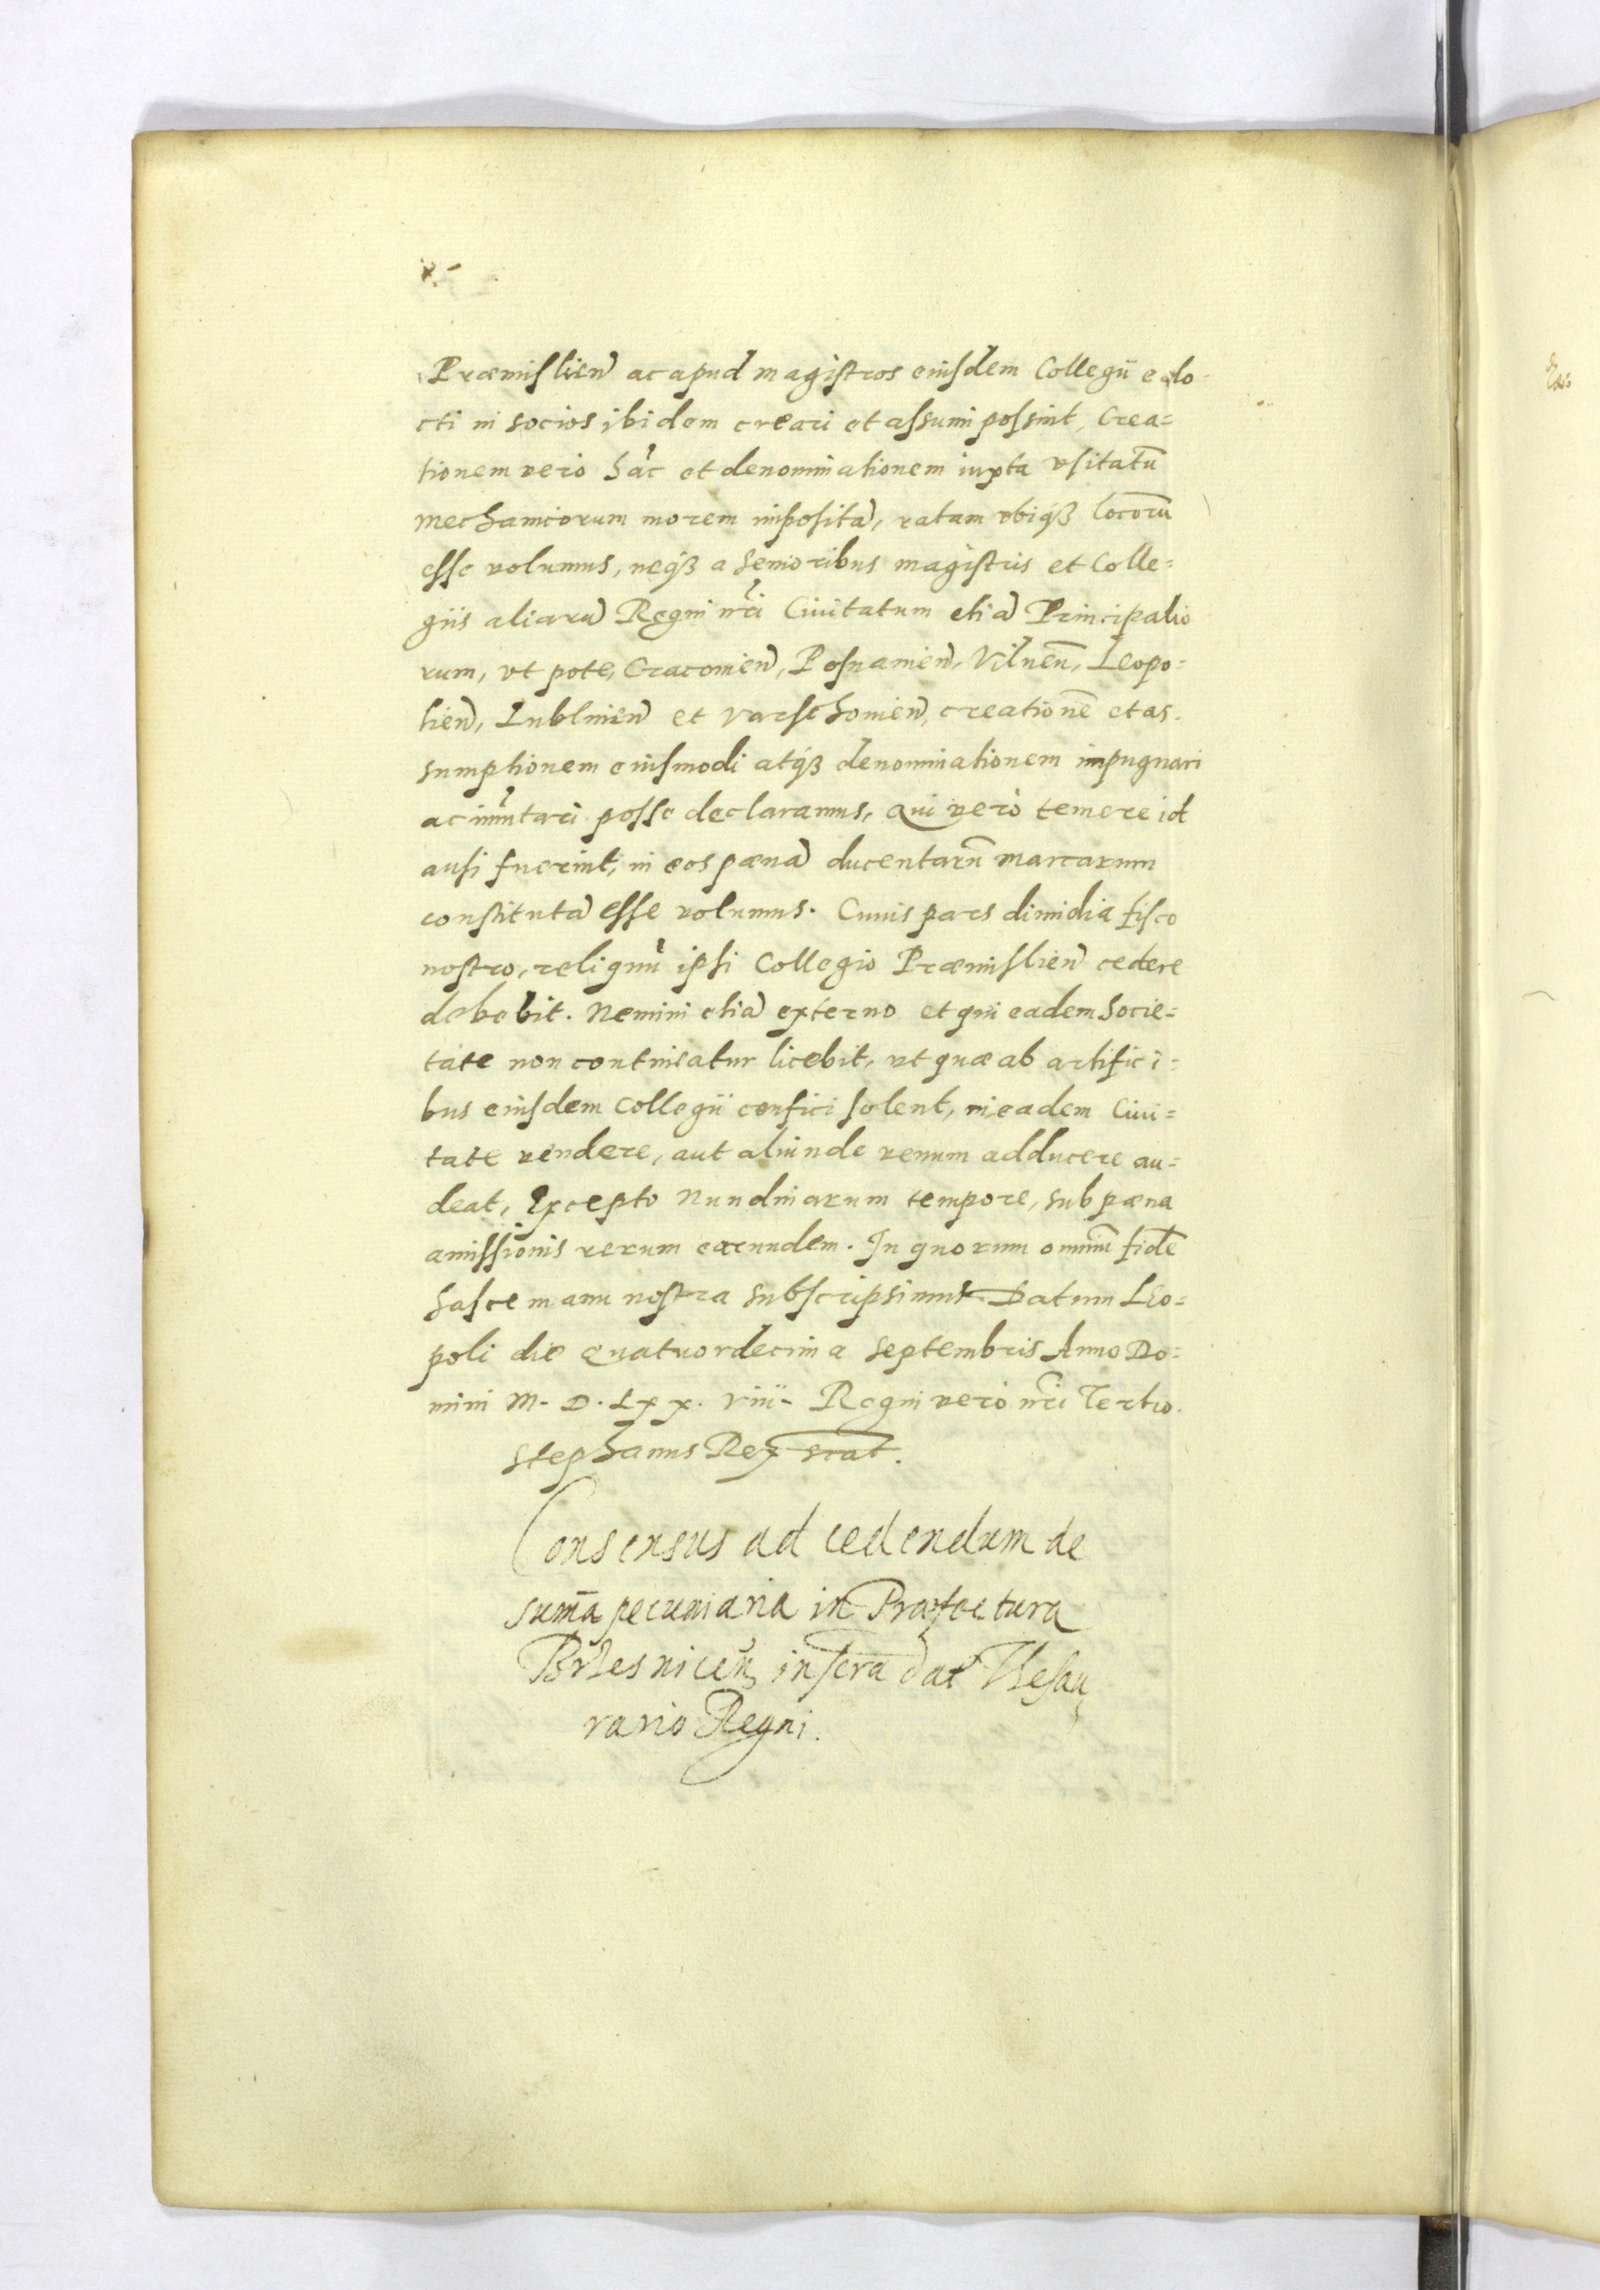 Præmislien̄ ac apud magistros eiusdem Collegii edo-
cti in socios ibidem creari et assumi possint, Crea=
tionem vero hāc et denominationem iuxta vsitatū
mechanicorum morem impositā, ratam vbiqꝫ locorū
esse volumus, neqꝫ a senioribus magistris et Colle=
giis aliarū Regni nr̄i Ciuitatum etiā Principalio
rum, vt pote, Cracouien̄, Posnanien̄, Vilnen̄, Leopo=
lien̄, Lublinen̄ et Varschouien̄, creationē et as-
sumptionem eiusmodi atqꝫ denominationem impugnari
ac im̄utari posse declaramus, Qui verò temere id
ausi fuerint, in eos pænā ducentarū marcarum
constitutā esse volumus. Cuius pars dimidia fisco
nostro, reliquū ipsi Collegio Præmislien̄ cedere
debebit. Nemini etiā externo et qui eadem Socie=
tate non contineatur licebit, vt quæ ab artifici=
bus eiusdem Collegii confici solent, in eadem Ciui=
tate vendere, aut aliunde venum adducere au=
deat, Excepto Nundinarum tempore, sub pæna
amissionis rerum earundem. In quorum omniū fidē
hasce manu nostra subscripsimus Datum Leo=
poli die Quatuordecima Septembris Anno Do=
mini M. D. Lxx. viii. Regni verò nr̄i Tertio.
Stephanus Rex scat.
Consensus ad cedendum de
sum̄a pecuniaria in Præfectura
Brzesnicen̄ inscra dat Thesau
rario Regni.